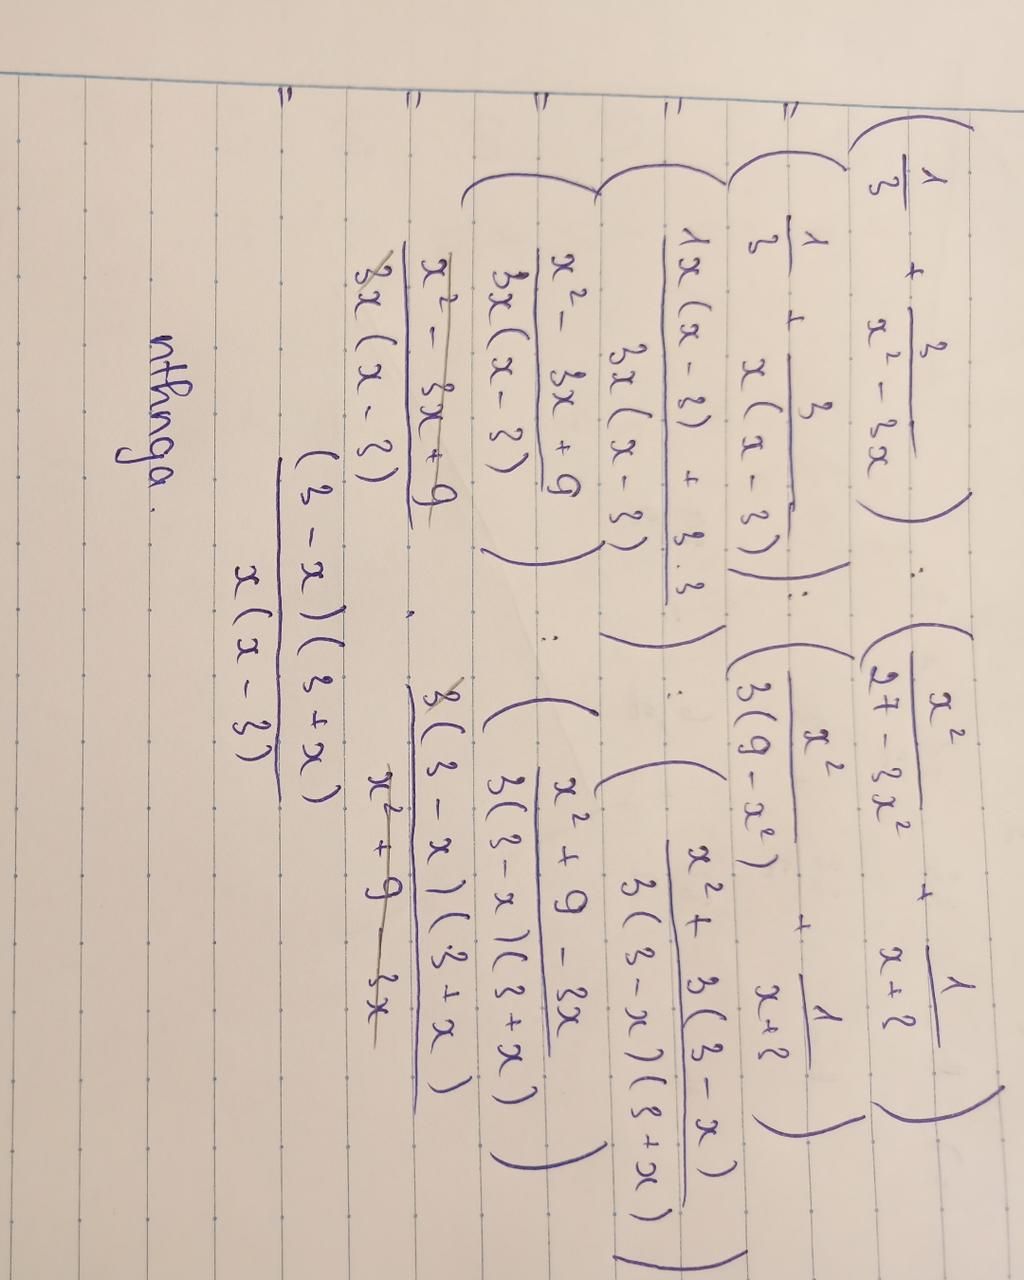 (1/3 + 3/(x² - 3x)) : (x²/(27 - 3x²) + 1/(x+3))
= (1/3 + 3/(x(x - 3))) : (x²/(3(9 - x²)) + 1/(x+3))
= ((1x(x - 3) + 3.3)/(3x(x - 3))) : ((x² + 3(3 - x))/(3(3 - x)(3 + x)))
= ((x² - 3x + 9)/(3x(x - 3))) : ((x² + 9 - 3x)/(3(3 - x)(3 + x)))
= (x² - 3x + 9)/(3x(x - 3)) . (3(3 - x)(3 + x))/(x² + 9 - 3x)
= ((3 - x)(3 + x))/(x(x - 3))
nthnga.